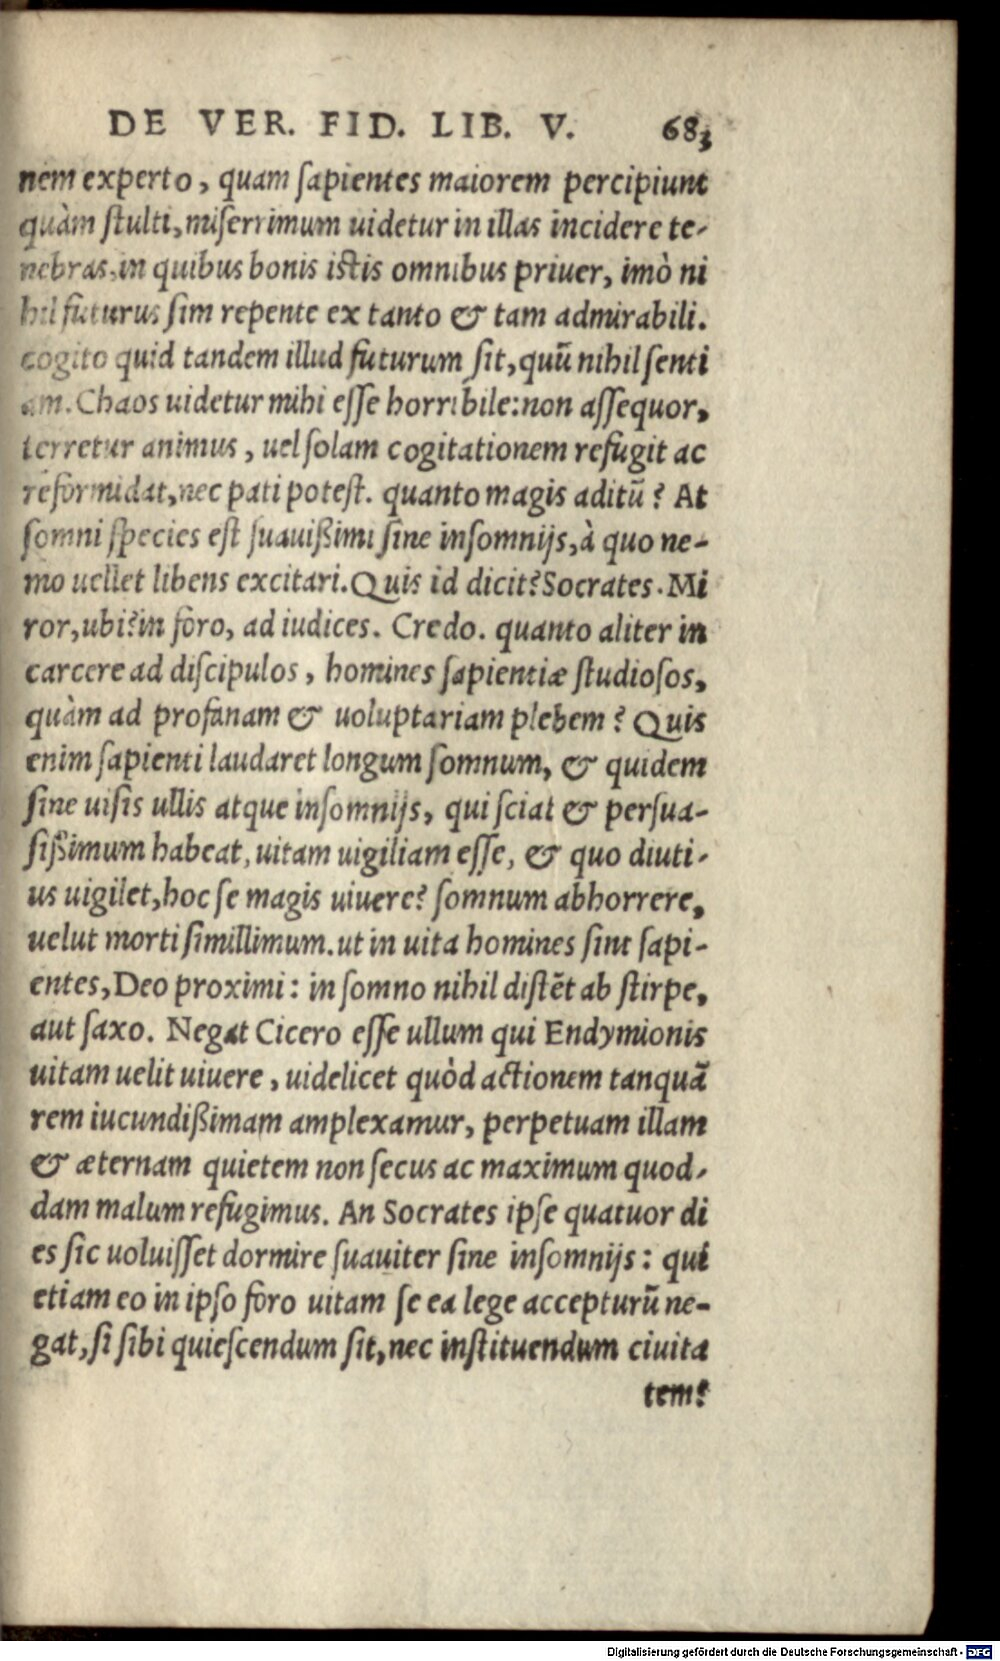 DE VER. FID. LIB. V. 683
nem experto, quam ſapientes maiorem percipiunt
quàm ſtulti, miſerrimum uidetur in illas incidere te-
nebras, in quibus bonis iſtis omnibus priuer, imò ni
hil futurus ſim repente ex tanto & tam admirabili.
cogito quid tandem illud futurum ſit, quũ nihil ſenti
am. Chaos uidetur mihi eſſe horribile: non aſſequor,
terretur animus, uel ſolam cogitationem refugit ac
reformidat, nec pati poteſt. quanto magis aditũ? At
ſomni ſpecies eſt ſuauißimi ſine inſomnijs, à quo ne-
mo uellet libens excitari. Quis id dicit? Socrates. Mi
ror, ubi? in foro, ad iudices. Credo. quanto aliter in
carcere ad diſcipulos, homines ſapientiæ ſtudioſos,
quàm ad profanam & uoluptariam plebem? Quis
enim ſapienti laudaret longum ſomnum, & quidem
ſine uiſis ullis atque inſomnijs, qui ſciat & perſua-
ſißimum habeat, uitam uigiliam eſſe, & quo diuti-
us uigilet, hoc ſe magis uiuere? ſomnum abhorrere,
uelut morti ſimillimum. ut in uita homines ſint ſapi-
entes, Deo proximi: in ſomno nihil diſtẽt ab ſtirpe,
aut ſaxo. Negat Cicero eſſe ullum qui Endymionis
uitam uelit uiuere, uidelicet quòd actionem tanquã
rem iucundißimam amplexamur, perpetuam illam
& æternam quietem non ſecus ac maximum quod-
dam malum refugimus. An Socrates ipſe quatuor di
es ſic uoluiſſet dormire ſuauiter ſine inſomnijs: qui
etiam eo in ipſo foro uitam ſe ea lege accepturũ ne-
gat, ſi ſibi quieſcendum ſit, nec inſtituendum ciuita
tem?
Digitalisierung gefördert durch die Deutsche Forschungsgemeinschaft - DFG